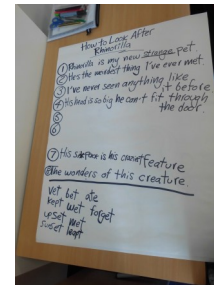 How to Look After
Rhinorilla
① Rhinorilla is my new strange pet.
② He's the weirdest thing I've ever met.
③ I've never seen anything like it before
④ His head is so big he can't fit through
the door.
⑤
⑥
⑦ His is his feature
⑧ The wonders of this creature.
vet bet ate
kept wet forget
upset met
sunset